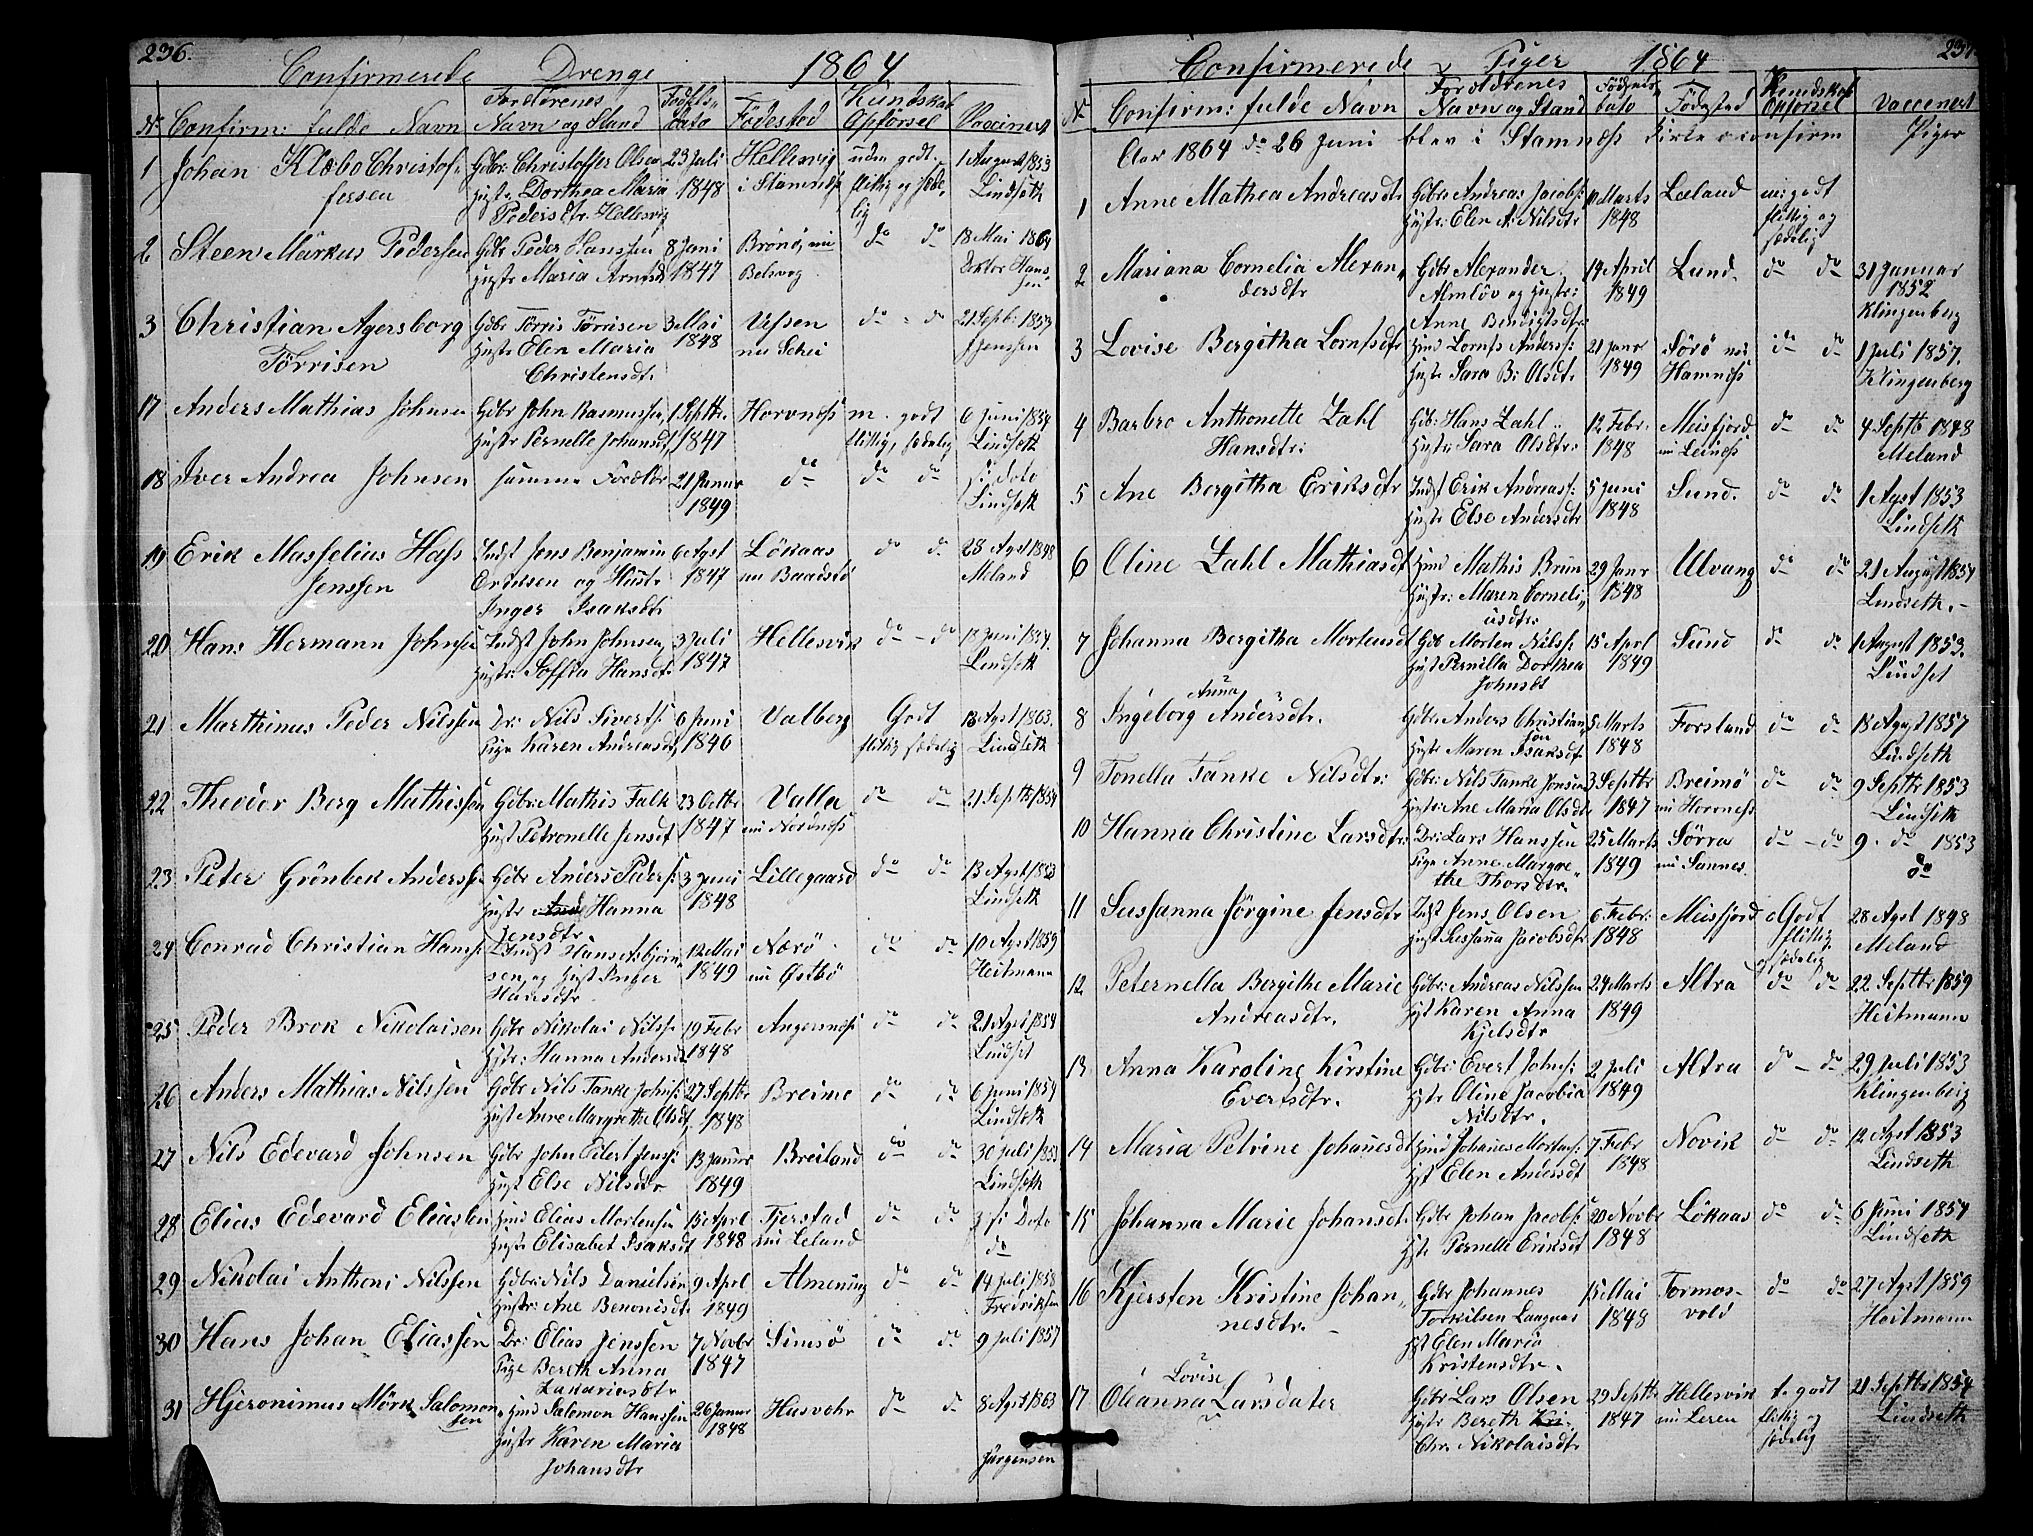 236.
Confirmerede Drenge 1864
No Confirm: fulde Navn Forældrenes Navn og Stand Fødsels-dato Fødested Kundskab Opførsel Vaccineret
1 Johan Klæbo Christoffersen Gdbr Christoffer Olsen Hustr. Dorthea Maria Pedersdtr. Hellesvig 23 Juli 1848 Hellesvig i Stamnes uden godt. flittig og sædelig 1 August 1853 Lindseth
2 Steen Markus Pedersen Gdbr Peder Hanssen Hustr Maria Arntsdtr 8 Juni 1847 Brønø, nu Belsvog do do 18 Mai 1864 Doktor Hanssen
3 Christian Agersborg Törrisen Gdbr Törris Törrisen Hustr Elen Maria Christensdt. 3 Mai 1848 Vefsen nu Schei do do 21 Septb: 1853 Jenssen
17 Anders Mathias Johnsen Gdbr John Rasmussen, Hustr Pernelle Johansdt, 1 Septbr. 1847 Horvnæss m. godt flittig, sædelig 6 Juni 1854 Lindseth
18 Iver Andrea Johnsen samme Forældr 21 Januar 1849 do do do s: Dato Lindseth
19 Erik Masselius Hass Jenssen Indst Jens Benjamin Eriksen og Hustr Inger Isaksdt. 6 Agst 1847 Lökaas nu Baadstø do do 28 Agst 1848 Meland
20 Hans Hermann Johnsen Indst John Johnsen, Hustr: Soffia Hansdt. 3 Juli 1847 Hellesvik do - do 18 Juni 1854. Lindseth
21 Marthinus Peder Nilssen Dr: Nils Sivertss: Pige Karen Andreasdt, 6 Juni 1846 Valberg Godt flittig sædelig 18 Agst 1863. Lindseth
22 Theodor Berg Mathissen Gdbr: Mathis Falk Hust Petronelle Jensdt 23 Octbr 1847 Valla nu Nordnæss do do 21 Septbr 1854
23 Peter Grönbek Anderssen Gdbr Anders Peders: Hustr Hanna Jensdtr. 3 Juni 1848 Lillegaard do do 13 Agst 1853 Lindseth
24 Conrad Christian Hanss: Indst Hans Asbjörnsen, og Hust Inger Hansdtr. 12 Mai 1849 Nærö nu Ostbö do do 10 Agst 1859 Heitmann
25 Peder Brok Nikolaisen Gdbr Nikolai Nilss: Hstr: Hanna Andersdt 19 Febr 1848 Angersnæss do do 21 Agst 1854 Lindset
26 Anders Mathias Nilssen Gdbr Nils Tanke Johns: Hust Anne Margrethe Olsdt, 27 Septbr 1848 Breime do do 6 Juni 1854 Lindseth
27 Nils Edevard Johnsen Gdbr John Eilert Jens: Hust Else Nilsdtr. 13 Januar 1849 Breiland do do 30 Juli 1853 Lindseth
28 Elias Edevard Eliassen Hmd Elias Mortensen Hustr Elisabet Isaksdt 15 Aprl 1848 Fjerstad nu Leland do do s: Dato do
29 Nikolai Anthoni Nilssen Gdbr: Nils Danielsen Hustr: Ane Benonisdt. 9 Aprl 1849 Almening do do 14 Juli 1858 Fredriksen
30 Hans Johan Eliassen Dr: Elias Jenssen Pige Bereth Anna Zakariasdtr 7 Novbr 1847 Simsö do do 9 Juli 1857
31 Hjeronimus Mörk Salomonsen Hmd Salomon Hanssen Hustr Karen Maria Johansdtr 26 Januar 1848 Husvohr do do 8 Agst 1863 Jørgensen
237.
Confirmerede Piger 1864
No Confirm: fulde Navn Forældrenes Navn og Stand Fødsels dato Fødested Kundskab Opførsel Vaccineret
Aar 1864 do 26 Juni blev i Stamnæss Kirke confirm Piger
1 Anne Mathea Andreasdtr Gdbr: Andreas Jacobs: Hustr: Elen A: Nilsdtr 10 Marts 1848 Leland m: godt flittig og sædelig
2 Mariana Cornelia Alexandersdtr Gdbr Alexander Almlöv og Hustr: Anne Bendigtsdtr 14 April 1849 Lund do do 31 Januar 1852 Klingenberg
3 Lovise Bergitha Lorntsdtr Hmd Lornts Anders: Hustr Sara B: Olsdt. 21 Janr 1849 Sörö nu Hamnæss do do 1 Juli 1857. Klingenberg
4 Barbro Anthonette Zahl Hansdtr: Gdb: Hans Zahl Hustr: Sara Olsdtr: 12 Febr: 1848 Meisfjord nu Leinæss do do 4 Septb 1848 Meland
5 Ane Bergitha Eriksdtr Indst Erik Andreas: Hustr Else Andersdtr 5 Juni 1848 Sund. do do 1 Agst 1853 Lindseth
6 Oline Zahl Mathiasdt Hmd Mathis Brun Hustr: Maren Corneliusdtr. 29 Janr 1848 Ulvang do do 21 August 1854 Lindseth.
7 Johanna Bergitha Mortensdt Gdb Morten Nilss: Hust Pernilla Dorthea Johnsdt 15 Aprl 1849 Sund do do 1 August 1853. Lindset
8 Ingeborg Anna Andersdtr. Gdbr: Anders Christiansen Hustr Maren Isaksdt. 5 Marts 1848 Forsland do do 18 Agust 1857 Lindseth
9 Tonella Tanke Nilsdtr: Gdbr: Nils Tanke Jonsen Hustr: Ane Maria Olsdt. 3 Septbr 1847 Breimö nu Horvnæss do do 9 Septbr 1853 Lindseth
10 Hanna Christine Larsdtr: Dr: Lars Hanssen Pige Anne Margrethe Thorsdtr. 25 Marts 1849 Sörra nu Sannes. do - do 9. do 1853 do
11 Sussanna Jörgine Jensdtr Indst Jens Olsen Hust Sussanna Jacobsdtr 6 Febr: 1848 Meisfjord Godt flittig og sædelig 28 Agst 1848 Meland
12 Peternella Bergithe Marie Andreasdtr. Gdbr: Andreas Nilssen Hst Karen Anna Kjelsdtr 24 Marts 1849 Altra do do 22 Septbr 1859 Heitmann
13 Anna Karoline Kirstine Evertsdtr. Gdbr: Evert Johns: Hstr Oline Jacobia Nilsdtr. 2 Juli 1849 Altra do - do 29 Juli 1853 Klingenberg
14 Maria Petrine Johanesdt Hmd Johanes Mortens: Hst Elen Andersdt 7 Febr 1848 Novik do do 12 Agst 1853 Lindseth
15 Johanna Marie Johansdt. Gdbr Johan Jacobs: Hst. Pernelle Eriksdt 20 Novbr 1848 Lökaas do do 6 Juni 1854 Lindseth
16 Kjersten Kristine Johannesdtr. Gdbr Johannes Torkilsen Hst Elen Maria Kristensdtr. 15 Mai 1848 Formosvold do do 27 Agst 1859 Heitmann
17 Oleanna Lovise Larsdater Gdbr Lars Olsen Hustr Bereth Chr. Nikolaisdt. 29 Septbr 1847 Hellesvik nu Leren t. godt flittig og sædelig 21 Septbr 1854 Lindseth